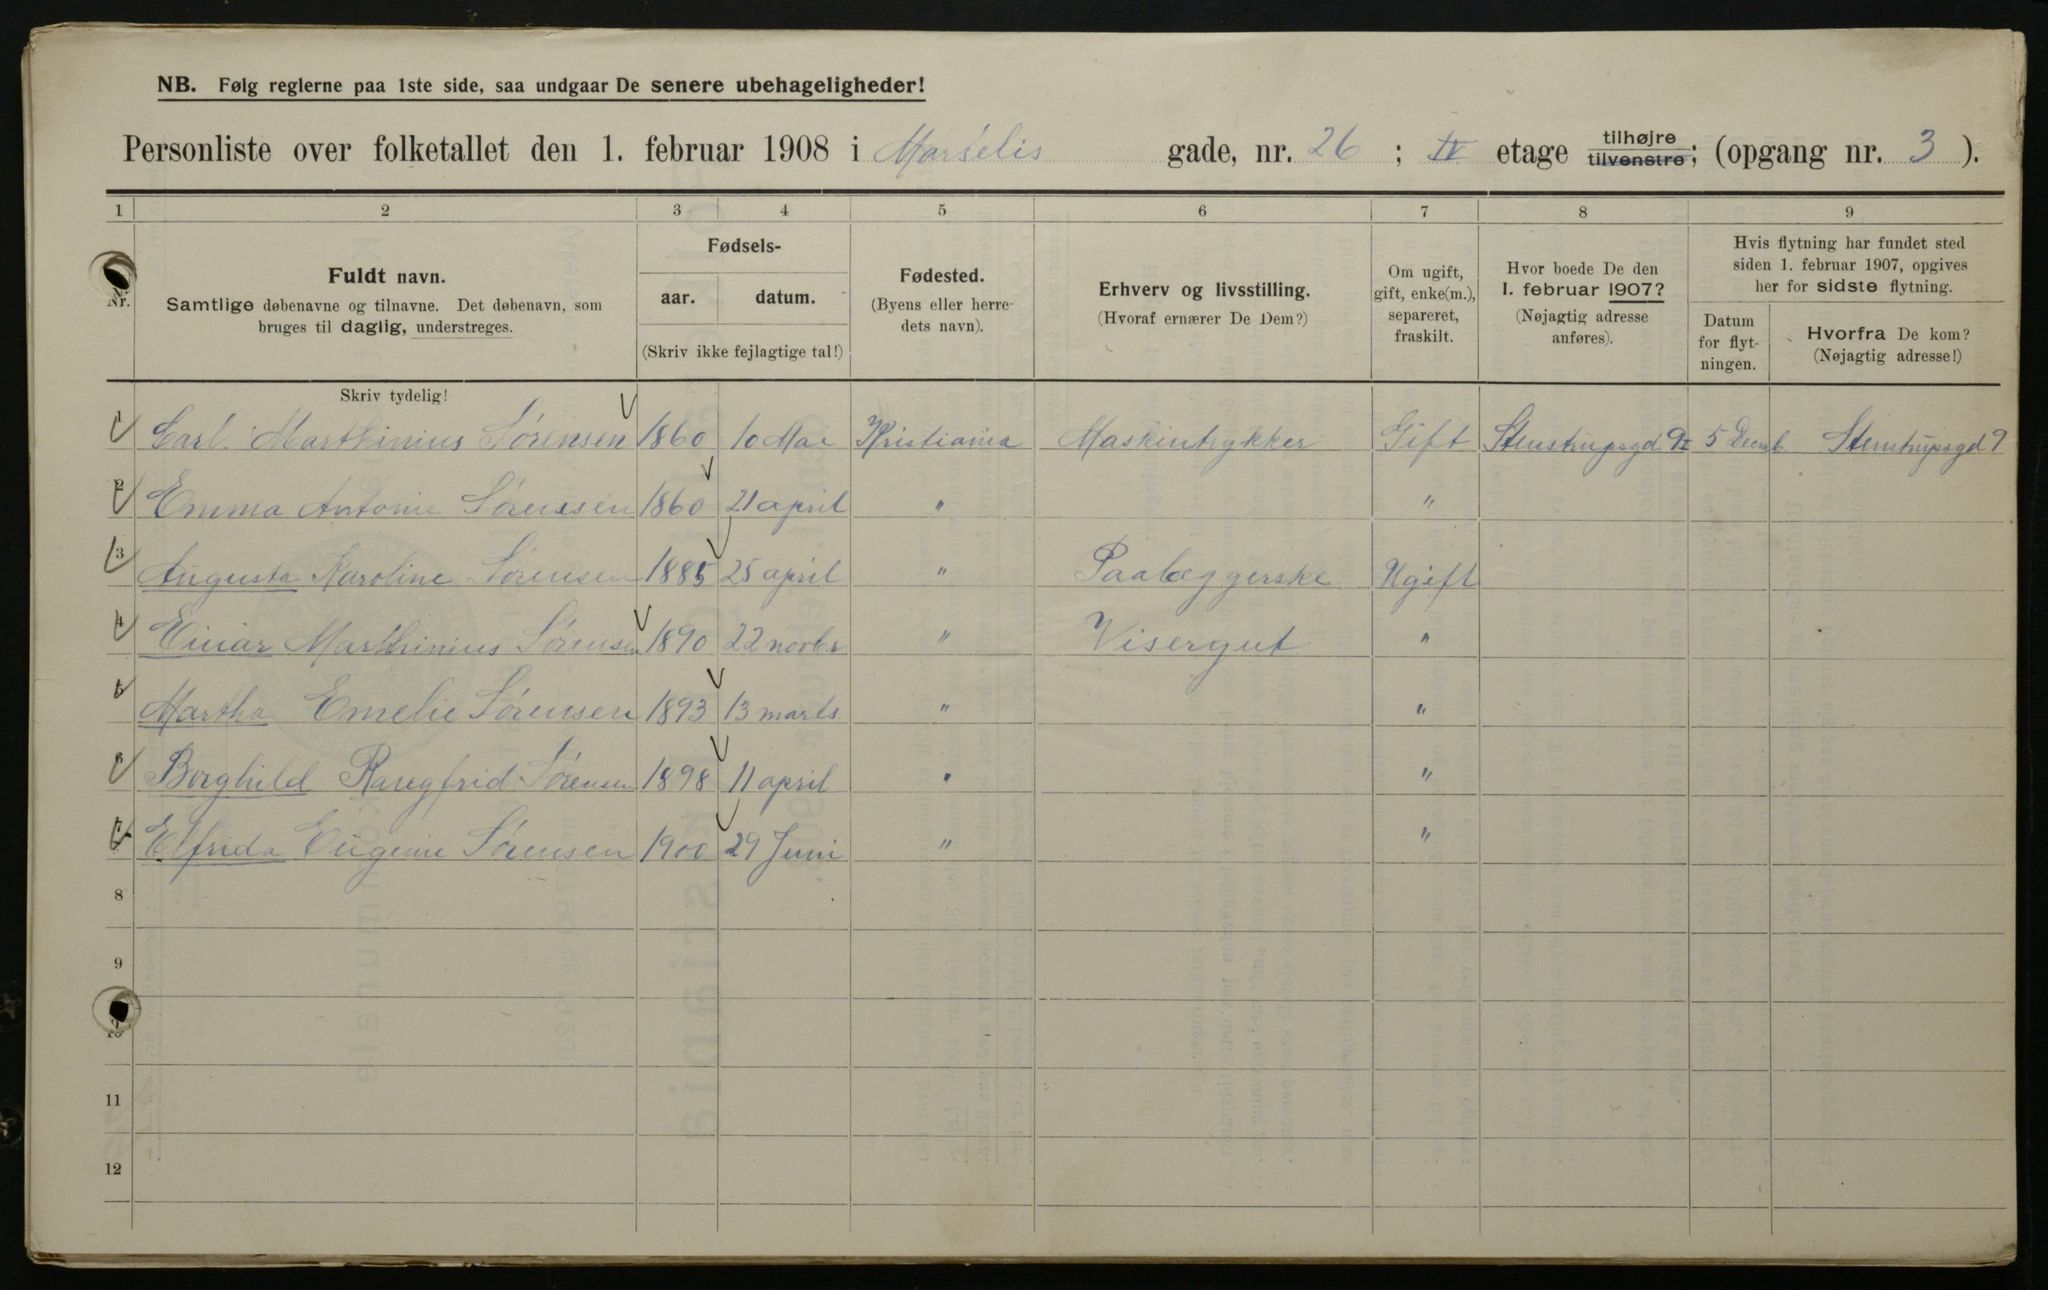 NB. Følg reglerne paa 1ste side, saa undgaar De senere ubehageligheder!
Personliste over folketallet den 1. februar 1908 i Marselis gade, nr. 26 ; IV etage tilhøjre tilvenstre; (opgang nr. 3 ).
1 2 3 4 5 6 7 8 9
Nr.
Fuldt navn.
Samtlige døbenavne og tilnavne. Det døbenavn, som
bruges til daglig, understreges.
Skriv tydelig!
Fødsels-
aar. datum.
(Skriv ikke fejlagtige tal!)
Fødested.
(Byens eller herre-
dets navn).
Erhverv og livsstilling.
(Hvoraf ernærer De Dem?)
Om ugift,
gift, enke(m.),
separeret,
fraskilt.
Hvor boede De den
1. februar 1907?
(Nøjagtig adresse
anføres).
Hvis flytning har fundet sted
siden 1. februar 1907, opgives
her for sidste flytning.
Datum
for flyt-
ningen.
Hvorfra De kom?
(Nøjagtig adresse!)
1 Carl Marthinius Sørensen 1860 10 Mai Kristiania Maskintrykker Gift Stenstrupsgd 9 II 5 Decmb. Stenstrupsgd 9
2 Emma Antonie Sørensen 1860 21 april " "
3 Augusta Karoline Sørensen 1885 25 april " Paalæggerske Ugift
4 Einar Marthinius Sørensen 1890 22 novbr " Visergut "
5 Martha Emelie Sørensen 1893 13 marts. " "
6 Borghild Rangfrid Sørensen 1898 11 april " "
7 Elfrida Eugenie Sørensen 1900 29 Juni " "
8
9
10
11
12